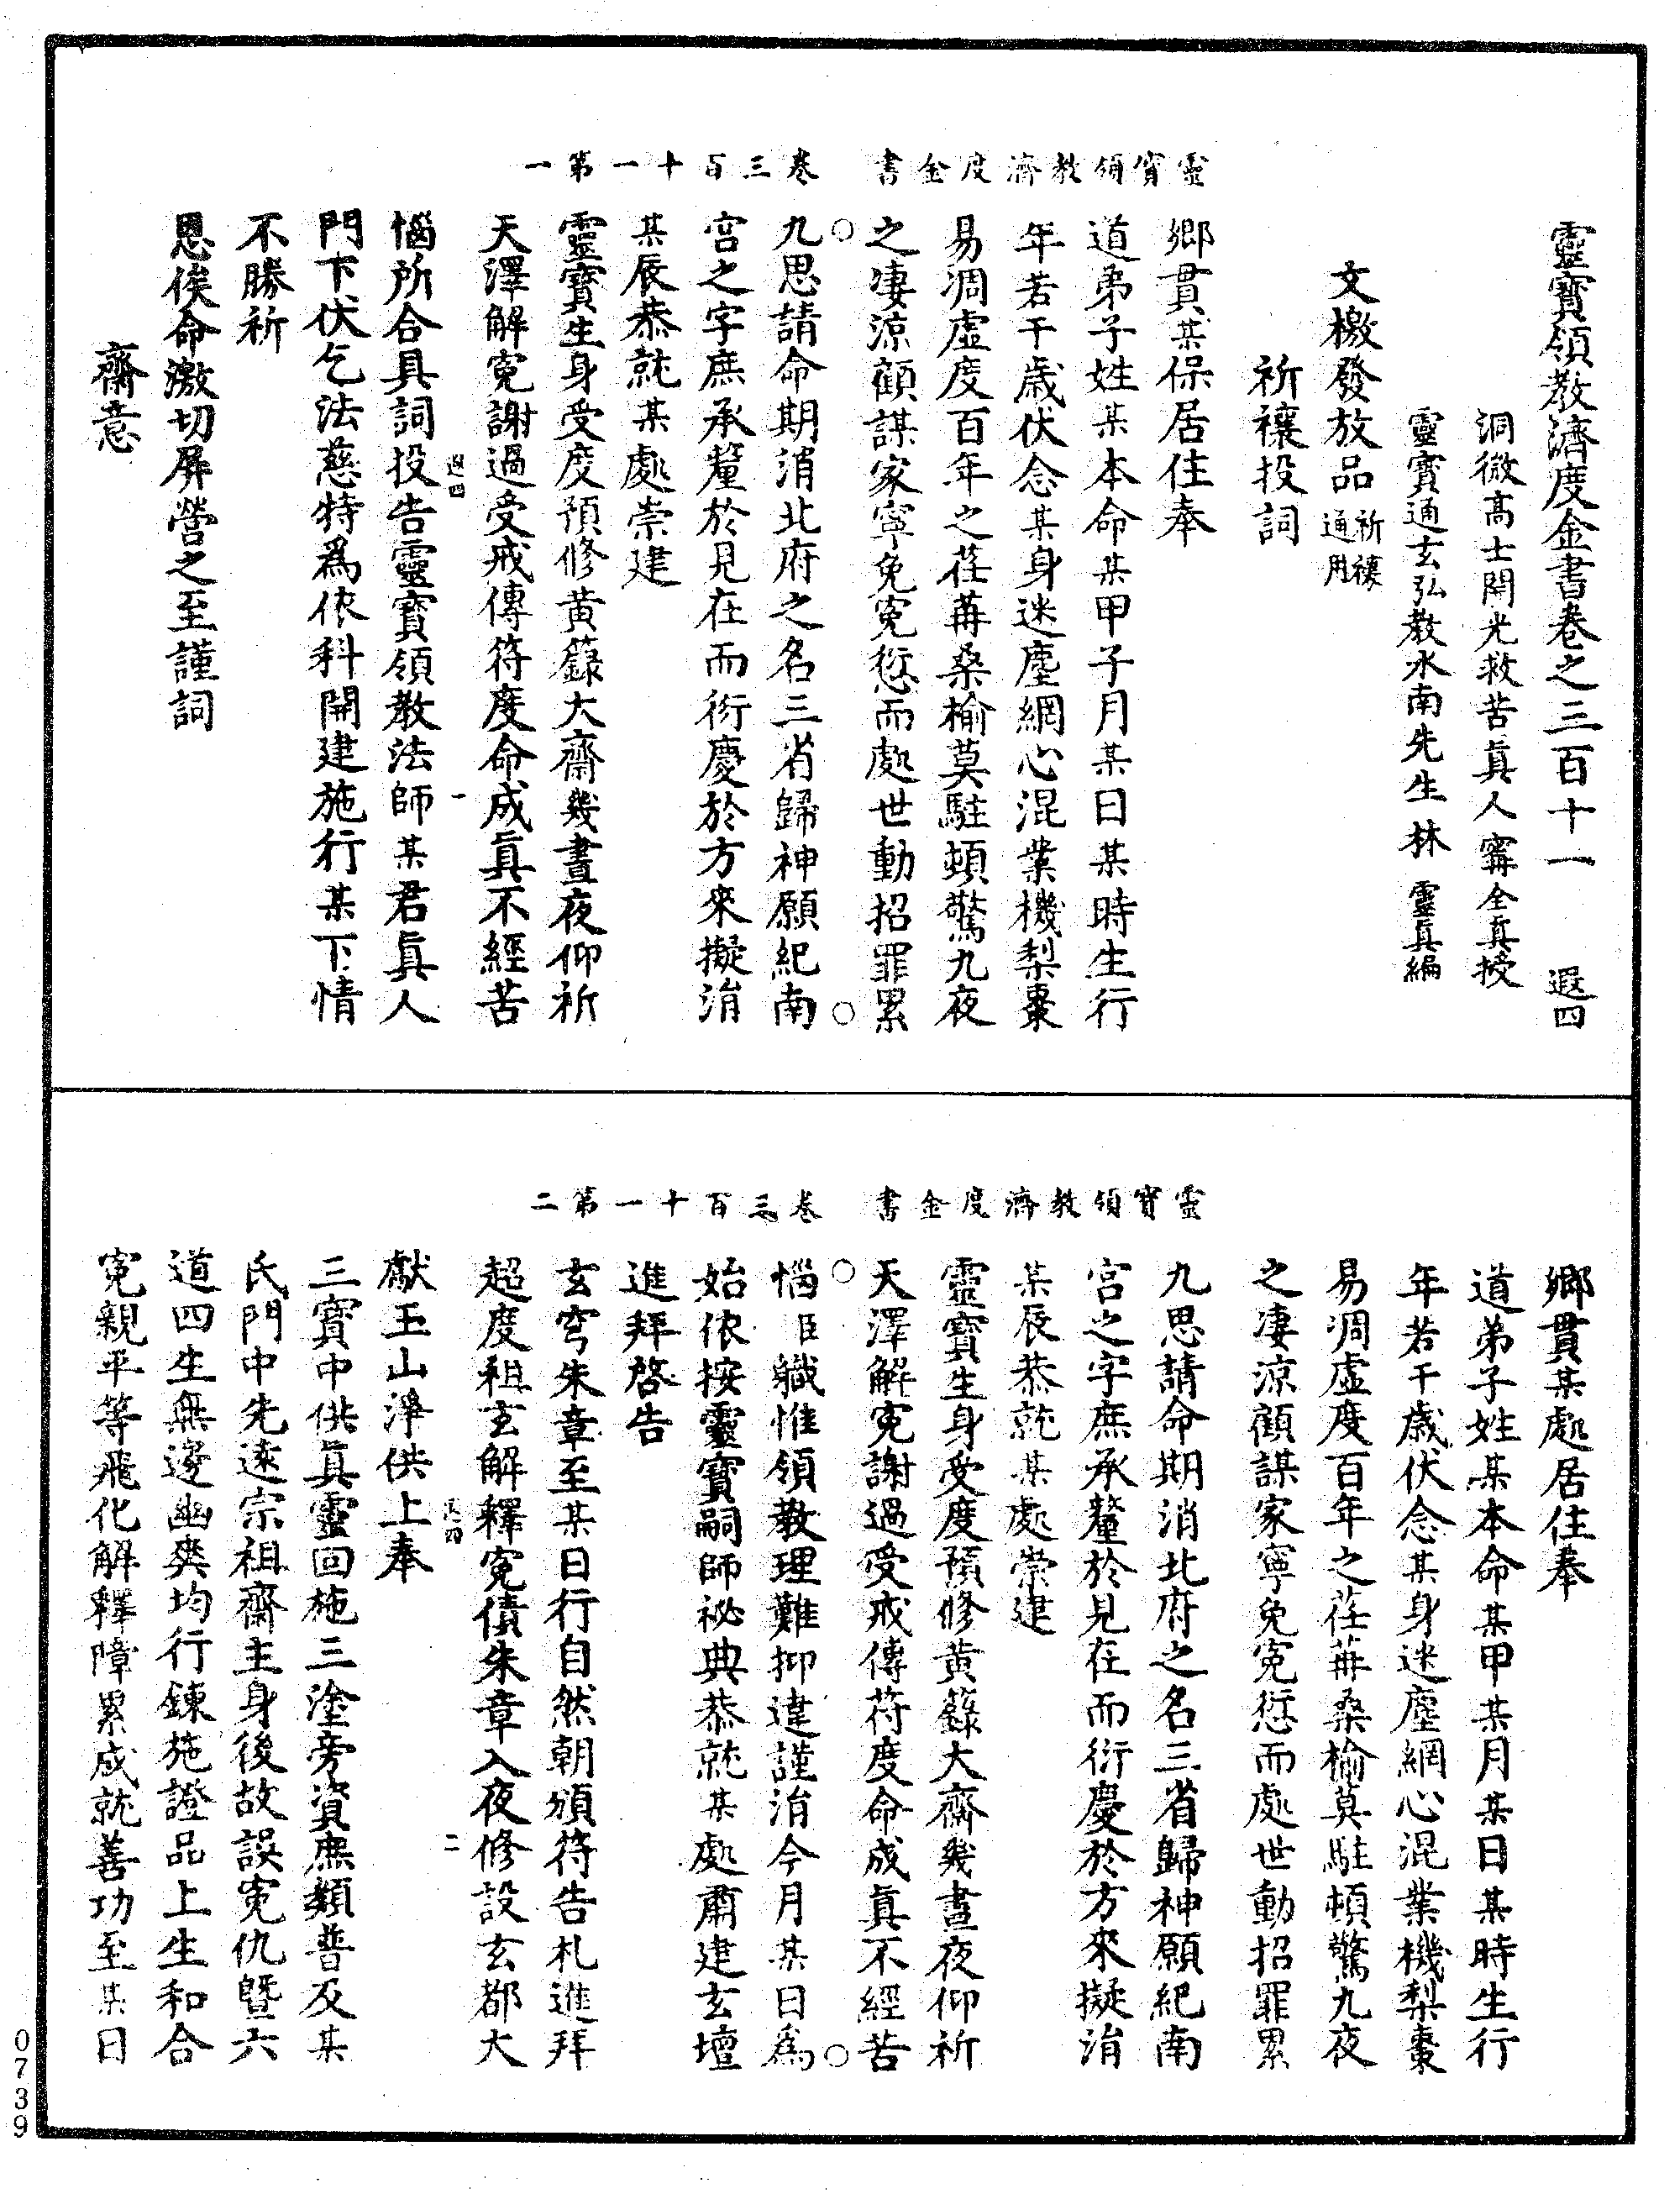 靈寶領教濟度金書卷之三百十一　遐四
洞微高士開光救苦眞人甯全真授
靈寶通玄弘教水南先生林靈真編
文檄發放品祈禳通用
祈禳投詞
鄉貫某保居住奉
道弟子姓某本命某甲子月某日某時生行
年若干歲伏念某身迷塵網心混業機梨棗
易凋虛度百年之荏苒桑榆莫駐頓驚九夜
之凄涼顧謀家寧免寃愆而處世動招罪累
靈寶領教濟度金書　卷三百十一第一
九思請命期消北府之名三省歸神願紀南
宮之字庶承釐於見在而衍慶於方來擬涓
某辰恭就某處崇建
靈寶生身受度預修黃籙大齋幾晝夜仰祈
天澤解寃謝過受戒傳符度命成眞不經苦
遐四　一
惱所合具詞投告靈寶領教法師某君眞人
門下伏乞法慈特爲依科開建施行某下情
不勝祈
恩俟命激切屏營之至謹詞
齋意
鄉貫某處居住奉
道弟子姓某本命某甲某月某日某時生行
年若干歲伏念某身迷塵網心混業機梨棗
易凋虛度百年之荏苒桑榆莫駐頓驚九夜
之凄涼顧謀家寧免寃愆而處世動招罪累
九思請命期消北府之名三省歸神願紀南
宮之字庶承釐於見在而衍慶於方來擬涓
某辰恭就某處崇建
靈寶生身受度預修黃籙大齋幾晝夜仰祈
天澤解寃謝過受戒傳符度命成眞不經苦
靈寶領教濟度金書　卷三百十一第二
惱臣職惟領教理難抑違謹涓今月某日爲
始依按靈寶嗣師祕典恭就某處肅建玄壇
進拜啓告
玄穹朱章至某日行自然朝頒符告札進拜
超度祖玄解釋寃債朱章入夜修設玄都大
遐四　二
獻玉山淨供上奉
三寶中供眞靈回施三塗旁資庶類普及某
氏門中先遠宗祖齋主身後故誤寃仇曁六
道四生無邊幽爽均行鍊施證品上生和合
寃親平等飛化解釋障累成就善功至某日
0739